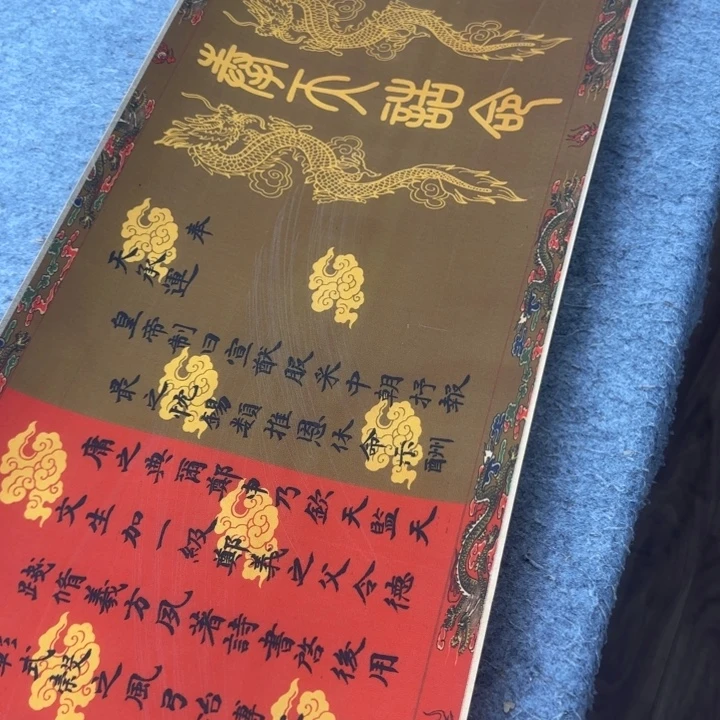 奉天誥命
奉
天承運
皇帝制曰宣猷服采中朝抒報
最之忱錫類推恩休命示酬
庸之典爾鄭中乃欽天監天
文生加一級鄭義之父令德
踐脩義方夙著詩書啓後用
式穀之風弓冶